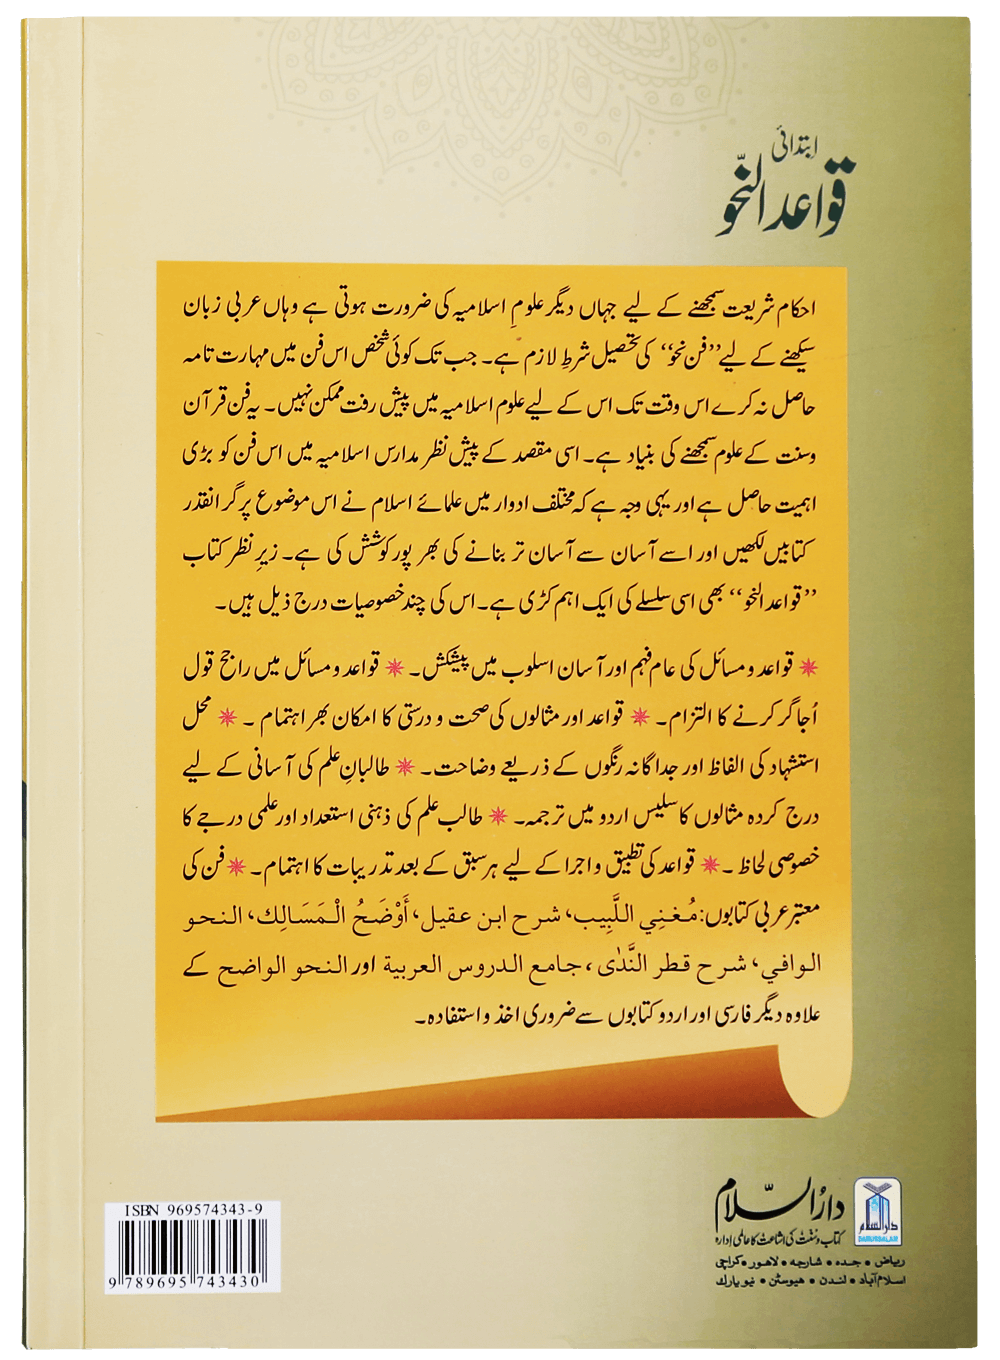 ابتدائی
قواعد النحو
احکام شریعت سمجھنے کے لیے جہاں دیگر علومِ اسلامیہ کی ضرورت ہوتی ہے وہاں عربی زبان
سیکھنے کے لیے ’’فن نحو‘‘ کی تحصیل شرطِ لازم ہے۔ جب تک کوئی شخص اس فن میں مہارت تامہ
حاصل نہ کرے اس وقت تک اس کے لیے علوم اسلامیہ میں پیش رفت ممکن نہیں۔ یہ فن قرآن
وسنت کے علوم سمجھنے کی بنیاد ہے۔ اسی مقصد کے پیش نظر مدارس اسلامیہ میں اس فن کو بڑی
اہمیت حاصل ہے اور یہی وجہ ہے کہ مختلف ادوار میں علمائے اسلام نے اس موضوع پر گرانقدر
کتابیں لکھیں اور اسے آسان سے آسان تر بنانے کی بھر پور کوشش کی ہے۔ زیرِ نظر کتاب
’’قواعد النحو‘‘ بھی اسی سلسلے کی ایک اہم کڑی ہے۔ اس کی چند خصوصیات درج ذیل ہیں۔
✷ قواعد ومسائل کی عام فہم اور آسان اسلوب میں پیشکش۔ ✷ قواعد ومسائل میں راجح قول
اُجاگر کرنے کا التزام۔ ✷ قواعد اور مثالوں کی صحت و درستی کا امکان بھر اہتمام۔ ✷ محل
استشہاد کی الفاظ اور جداگانہ رنگوں کے ذریعے وضاحت۔ ✷ طالبانِ علم کی آسانی کے لیے
درج کردہ مثالوں کا سلیس اردو میں ترجمہ۔ ✷ طالب علم کی ذہنی استعداد اور علمی درجے کا
خصوصی لحاظ۔ ✷ قواعد کی تطبیق و اجرا کے لیے ہر سبق کے بعد تدریبات کا اہتمام۔ ✷ فن کی
معتبر عربی کتابوں: مُغنِي اللَّبِيب، شرح ابن عقيل، أَوْضَحُ الْمَسَالِك، النحو
الوافي، شرح قطر النَّدٰى، جامع الدروس العربية اور النحو الواضح کے
علاوہ دیگر فارسی اور اردو کتابوں سے ضروری اخذ و استفادہ۔
دارالسلام
DARUSSALAM
دارُالسّلام
کتاب وسنت کی اشاعت کا عالمی ادارہ
ریاض • جدہ • شارجہ • لاہور • کراچی
اسلام آباد • لندن • ہیوسٹن • نیو یارک
ISBN 969574343-9
9 789695 743430